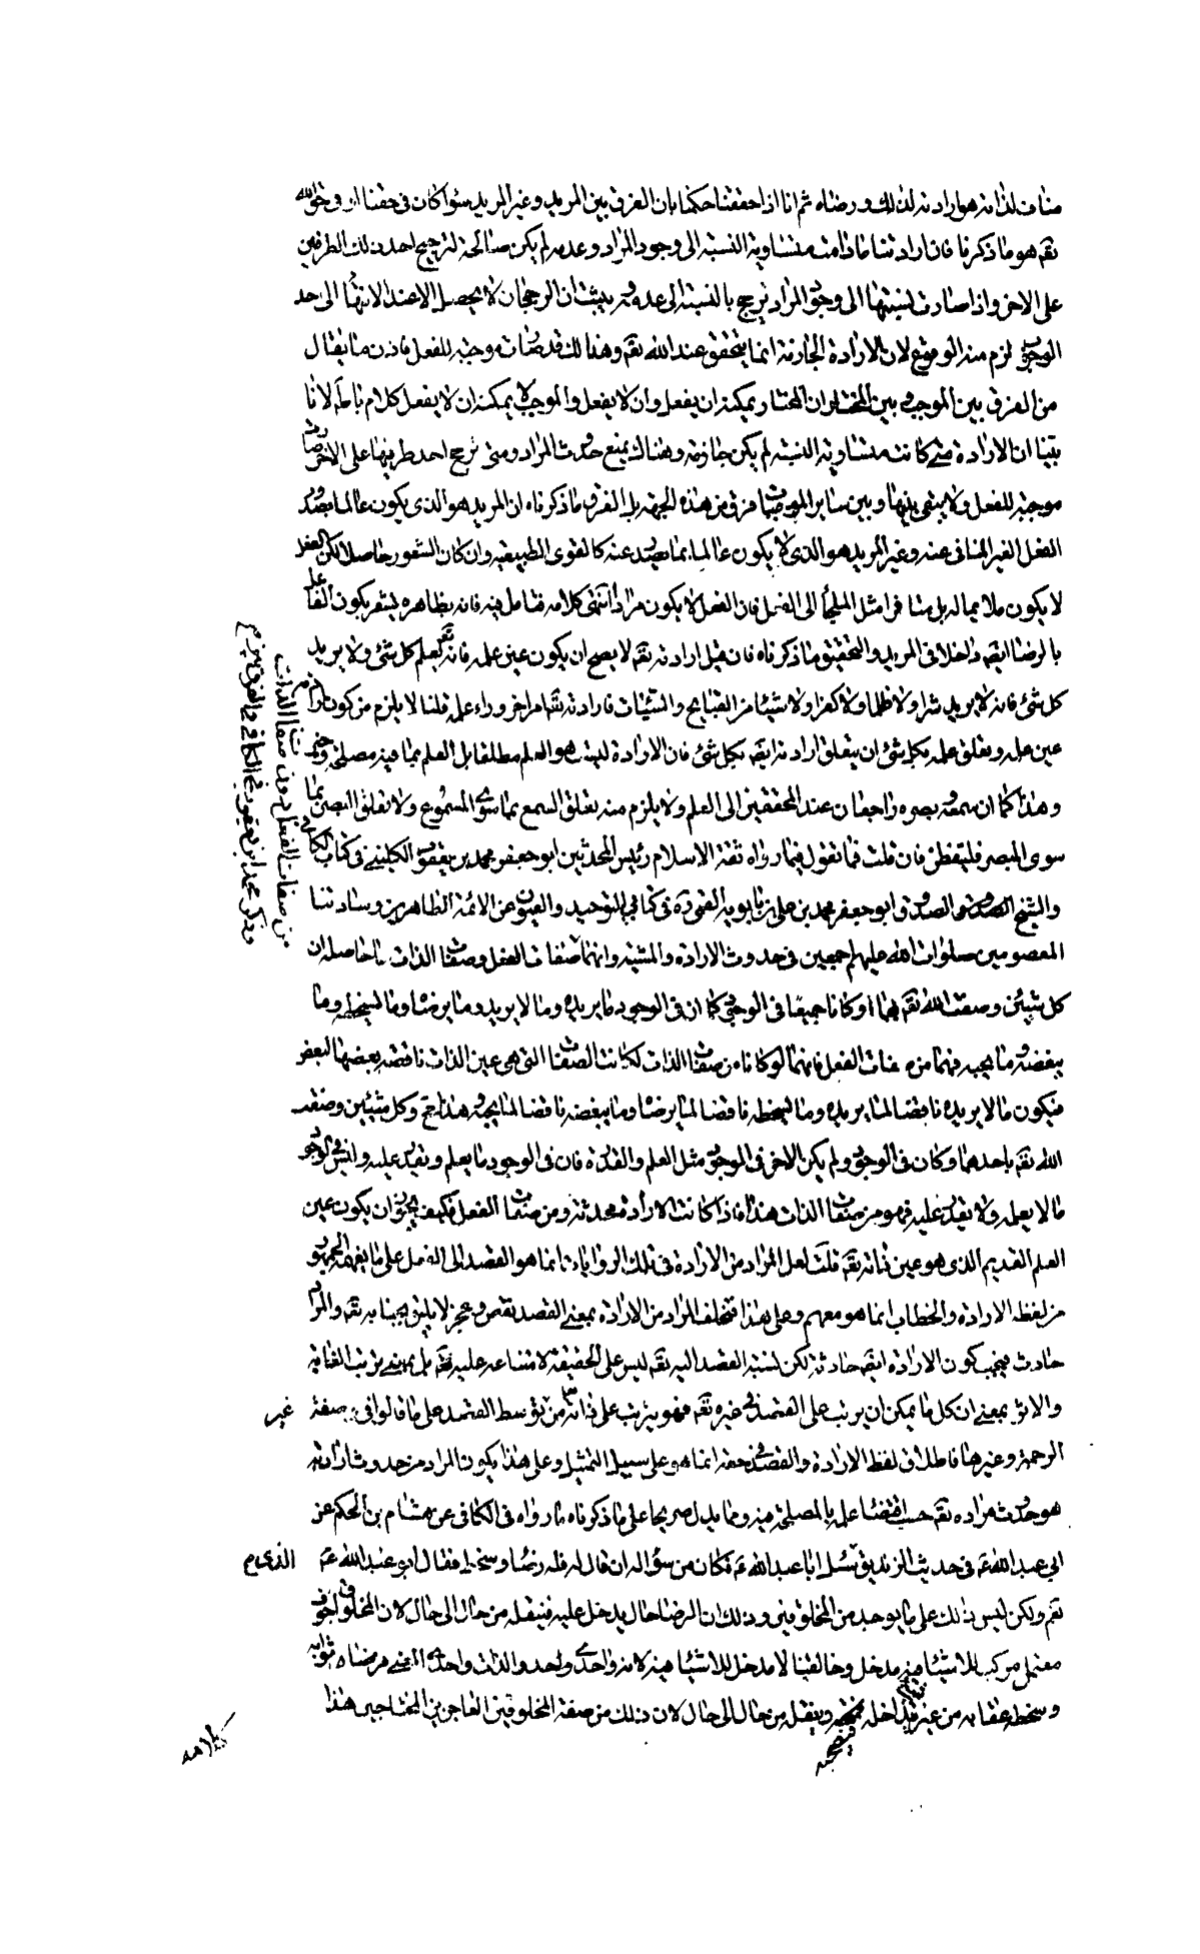 مناف لذاته هو ارادته لذلك ورضاه ثم انا اذا حققنا حكمنا بان الفرق بين المريد وغير المريد سواء كان في حقنا او في حق الله
تقه هو ما ذكرنا فان ارادتنا ما دامت متساوية النسبة الى وجود المراد وعدمه لم يكن صالحة لترجيح احد ذلك الطرفين
على الاخر واذا صارت نسبتها الى وجود المراد ترجح بالنسبة الى عدمه وثبت ان الرجحان لا يحصل الا عند الانتهاء الى حد
الوجوب لزم منه الوقوع لان الارادة الجازمة انما يتحقق عند الله تقه وهنالك قد صارت موجبة للفعل فاذن ما يقال
من الفرق بين الموجب وبين المختار ان المختار يمكنه ان يفعل وان لا يفعل والموجب لا يمكنه ان لا يفعل كلام باطل لانا
بينا ان الارادة متى كانت متساوية النسبة لم يكن جازمة وهناك يمتنع حدوث المراد ومتى ترجح احد طرفيها على الاخر صارت
موجبة للفعل ولا يبقى بينها وبين ساير الموجبات فرق من هذه الجهة بل الفرق ما ذكرناه ان المريد هو الذي يكون عالما بصدور
الفعل الغير المنافي عنه وغير المريد هو الذي لا يكون عالما بما يصدر عنه كالقوى الطبيعية وان كان الشعور حاصلا لكن الفعل
لا يكون ملايما له بل منافرا مثل الملجأ الى الفعل فان الفعل لا يكون مرادا انتهى كلامه فتامل فيه فانه بظاهره يشعر بكون العلم
بالرضا ايقه داخلا في المريد والتحقيق ما ذكرناه فان قيل ارادته تقه لا يصح ان يكون عين علمه فانه تقه يعلم كل شئ ولا يريد
كل شئ فانه لا يريد شرا ولا ظلما ولا كفرا ولا شيئا من القبايح والسيئات فارادته تقه امر اخر وراء علمه قلنا لا يلزم من كون ارادته
عين علمه وتعلق علمه بكل شئ ان يتعلق ارادته ايقه بكل شئ فان الارادة ليست هو العلم مطلقا بل العلم بما فيه مصلحة وخير
وهذا كما ان سمعه وبصره راجعان عند المحققين الى العلم ولا يلزم منه تعلق السمع بما سوى المسموع ولا تعلق البصر بما
سوى المبصر فليتفطن فان قلت فما تقول فيما رواه ثقة الاسلام رئيس المحدثين ابو جعفر محمد بن يعقوب الكليني في كتاب الكافي
والشيخ الصدوق ابو جعفر محمد بن علي بن بابويه القمي ره في كتابي التوحيد والعيون عن الائمة الطاهرين وساداتنا
المعصومين صلوات الله عليهم اجمعين في حدوث الارادة والمشية وانهما صفات الفعل وصفات الذات ما حاصله ان
كل شيئين وصفت الله تقه بهما وكانا جميعا في الوجود كما ان في الوجود ما يريده وما لا يريد وما يرضاه وما يسخطه وما
يبغضه وما يحبه فهما من صفات الفعل فانهما لو كانا من صفات الذات لكانت الصفات التي هي عين الذات ناقضة بعضها لبعض
فيكون ما لا يريده ناقضا لما يريده وما يسخطه ناقضا لما يرضاه وما يبغضه ناقضا لما يحبه وهذا مح وكل شيئين وصفت
الله تقه باحدهما وكان في الوجود ولم يكن الاخر في الوجود مثل العلم والقدرة فان في الوجود ما يعلم ويقدر عليه وليس في الوجود
ما لا يعلمه ولا يقدر عليه فهو من صفات الذات هذا فاذا كانت الارادة محدثة ومن صفات الفعل فكيف يجوز ان يكون عين
العلم القديم الذي هو عين ذاته تقه قلت لعل المراد من الارادة في تلك الروايات انما هو القصد الى الفعل على ما يفهمه الجمهور
من لفظة الارادة والخطاب انما هو معهم وعلى هذا فتخلف المراد من الارادة بمعنى القصد نقص وعجز لا يليق بجنابه تقه والمراد
حادث فيجب كون الارادة ايقه حادثة لكن نسبة القصد اليه تقه ليس على الحقيقة لامتناعه عليه تقه بل بمعنى ترتب الغاية
والاثر بمعنى ان كل ما يمكن ان يرتب على القصد في غيره تقه فهو يترتب على ذاته من غير توسط القصد على ما قالوا في صفة
الرحمة وغيرها فاطلاق لفظ الارادة والقصد في حقه انما هو على سبيل التمثيل وعلى هذا يكون المراد من حدوث ارادته
هو حدوث مراده تقه حسب اقتضاء علمه بالمصلحة فيه ومما يدل صريحا على ما ذكرناه ما رواه في الكافي عن هشام بن الحكم عن
ابي عبد الله عم في حديث الزنديق الذي سئل ابا عبد الله عم فكان من سؤاله ان قال له فله رضا وسخط فقال ابو عبد الله عم
نعم ولكن ليس ذلك على ما يوجد من المخلوقين وذلك ان الرضا حال يدخل عليه فينقله من حال الى حال لان المخلوق اجوف
معتمل مركب للاشياء فيه مدخل وخالقنا لا مدخل للاشياء فيه لانه واحد واحدي الذات واحدي المعنى فرضاه ثوابه
وسخطه عقابه من غير شئ يتداخله فيهيجه وينقله من حال الى حال لان ذلك من صفة المخلوقين العاجزين المحتاجين هذا
كلامه
من صفات الفعل دون صفات الذات
وذكر محمد ابن يعقوب في الكافي والفرق بين